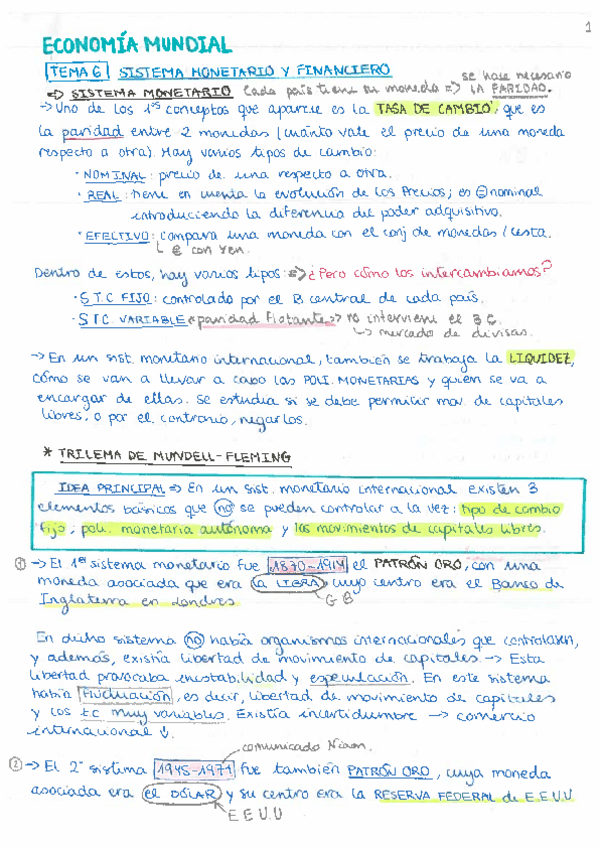 1
ECONOMÍA MUNDIAL
TEMA 6 SISTEMA MONETARIO Y FINANCIERO
se hace necesario
=> SISTEMA MONETARIO Cada país tiene su moneda => LA PARIDAD.
→ Uno de los 1ºs conceptos que aparece es la TASA DE CAMBIO, que es
la paridad entre 2 monedas (cuánto vale el precio de una moneda
respecto a otra). Hay varios tipos de cambio:
· NOMINAL: precio de una respecto a otra.
· REAL: tiene en cuenta la evolución de los precios; es = nominal
introduciendo la diferencia del poder adquisitivo.
· EFECTIVO: compara una moneda con el conj de monedas / cesta.
€ con Yen.
Dentro de estos, hay varios tipos: => ¿Pero cómo los intercambiamos?
· S.T.C FIJO: controlado por el B central de cada país.
· S.T.C. VARIABLE * paridad flotante => no interviene el B C.
↳ mercado de divisas.
→ En un sist. monetario internacional, también se trabaja la LIQUIDEZ,
cómo se van a llevar a cabo las POLI. MONETARIAS y quién se va a
encargar de ellas. Se estudia si se debe permitir mov. de capitales
libres, o por el contrario, negarlos.
* TRILEMA DE MUNDELL-FLEMING
IDEA PRINCIPAL => En un sist. monetario internacional existen 3
elementos básicos que no se pueden controlar a la vez: tipo de cambio
fijo, poli. monetaria autónoma y los movimientos de capitales libres.
① → El 1er sistema monetario fue 1870-1914 el PATRÓN ORO, con una
moneda asociada que era la LIBRA, cuyo centro era el Banco de
Inglaterra en Londres.
G B
En dicho sistema no había organismos internacionales que controlasen,
y además, existía libertad de movimiento de capitales. → Esta
libertad provocaba inestabilidad y especulación. En este sistema
había fluctuación, es decir, libertad de movimiento de capitales
y los t.c muy variables. Existía incertidumbre → comercio
internacional ↓.
comunicado Nixon.
② → El 2º sistema 1945-1971 fue también PATRÓN ORO, cuya moneda
asociada era el DÓLAR y su centro era la RESERVA FEDERAL de E.E.U.U
E E U.U